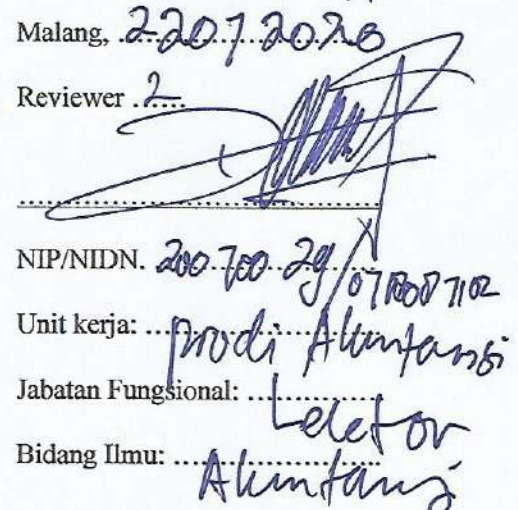 Malang, 22 07 2020
Reviewer 2
NIP/NIDN. 200 700 29/
Unit kerja: prodi Akuntansi
Jabatan Fungsional: Lektor
Bidang Ilmu: Akuntansi